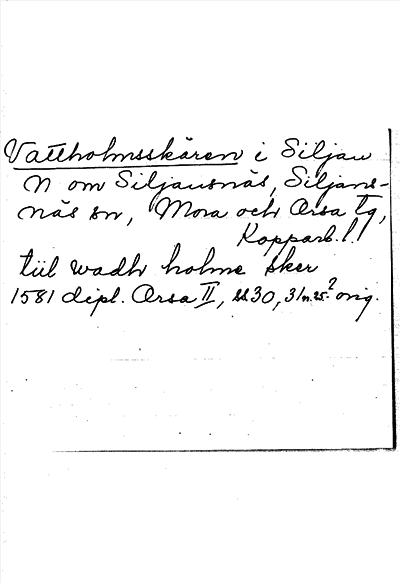 Vattholmsskären i Siljan
N om Siljansnäs, Siljans-
näs sn, Mora och Orsa tg,
Kopparb. l.
tiil wadh holme sker
1581 dipl. Orsa II, 30, orig.